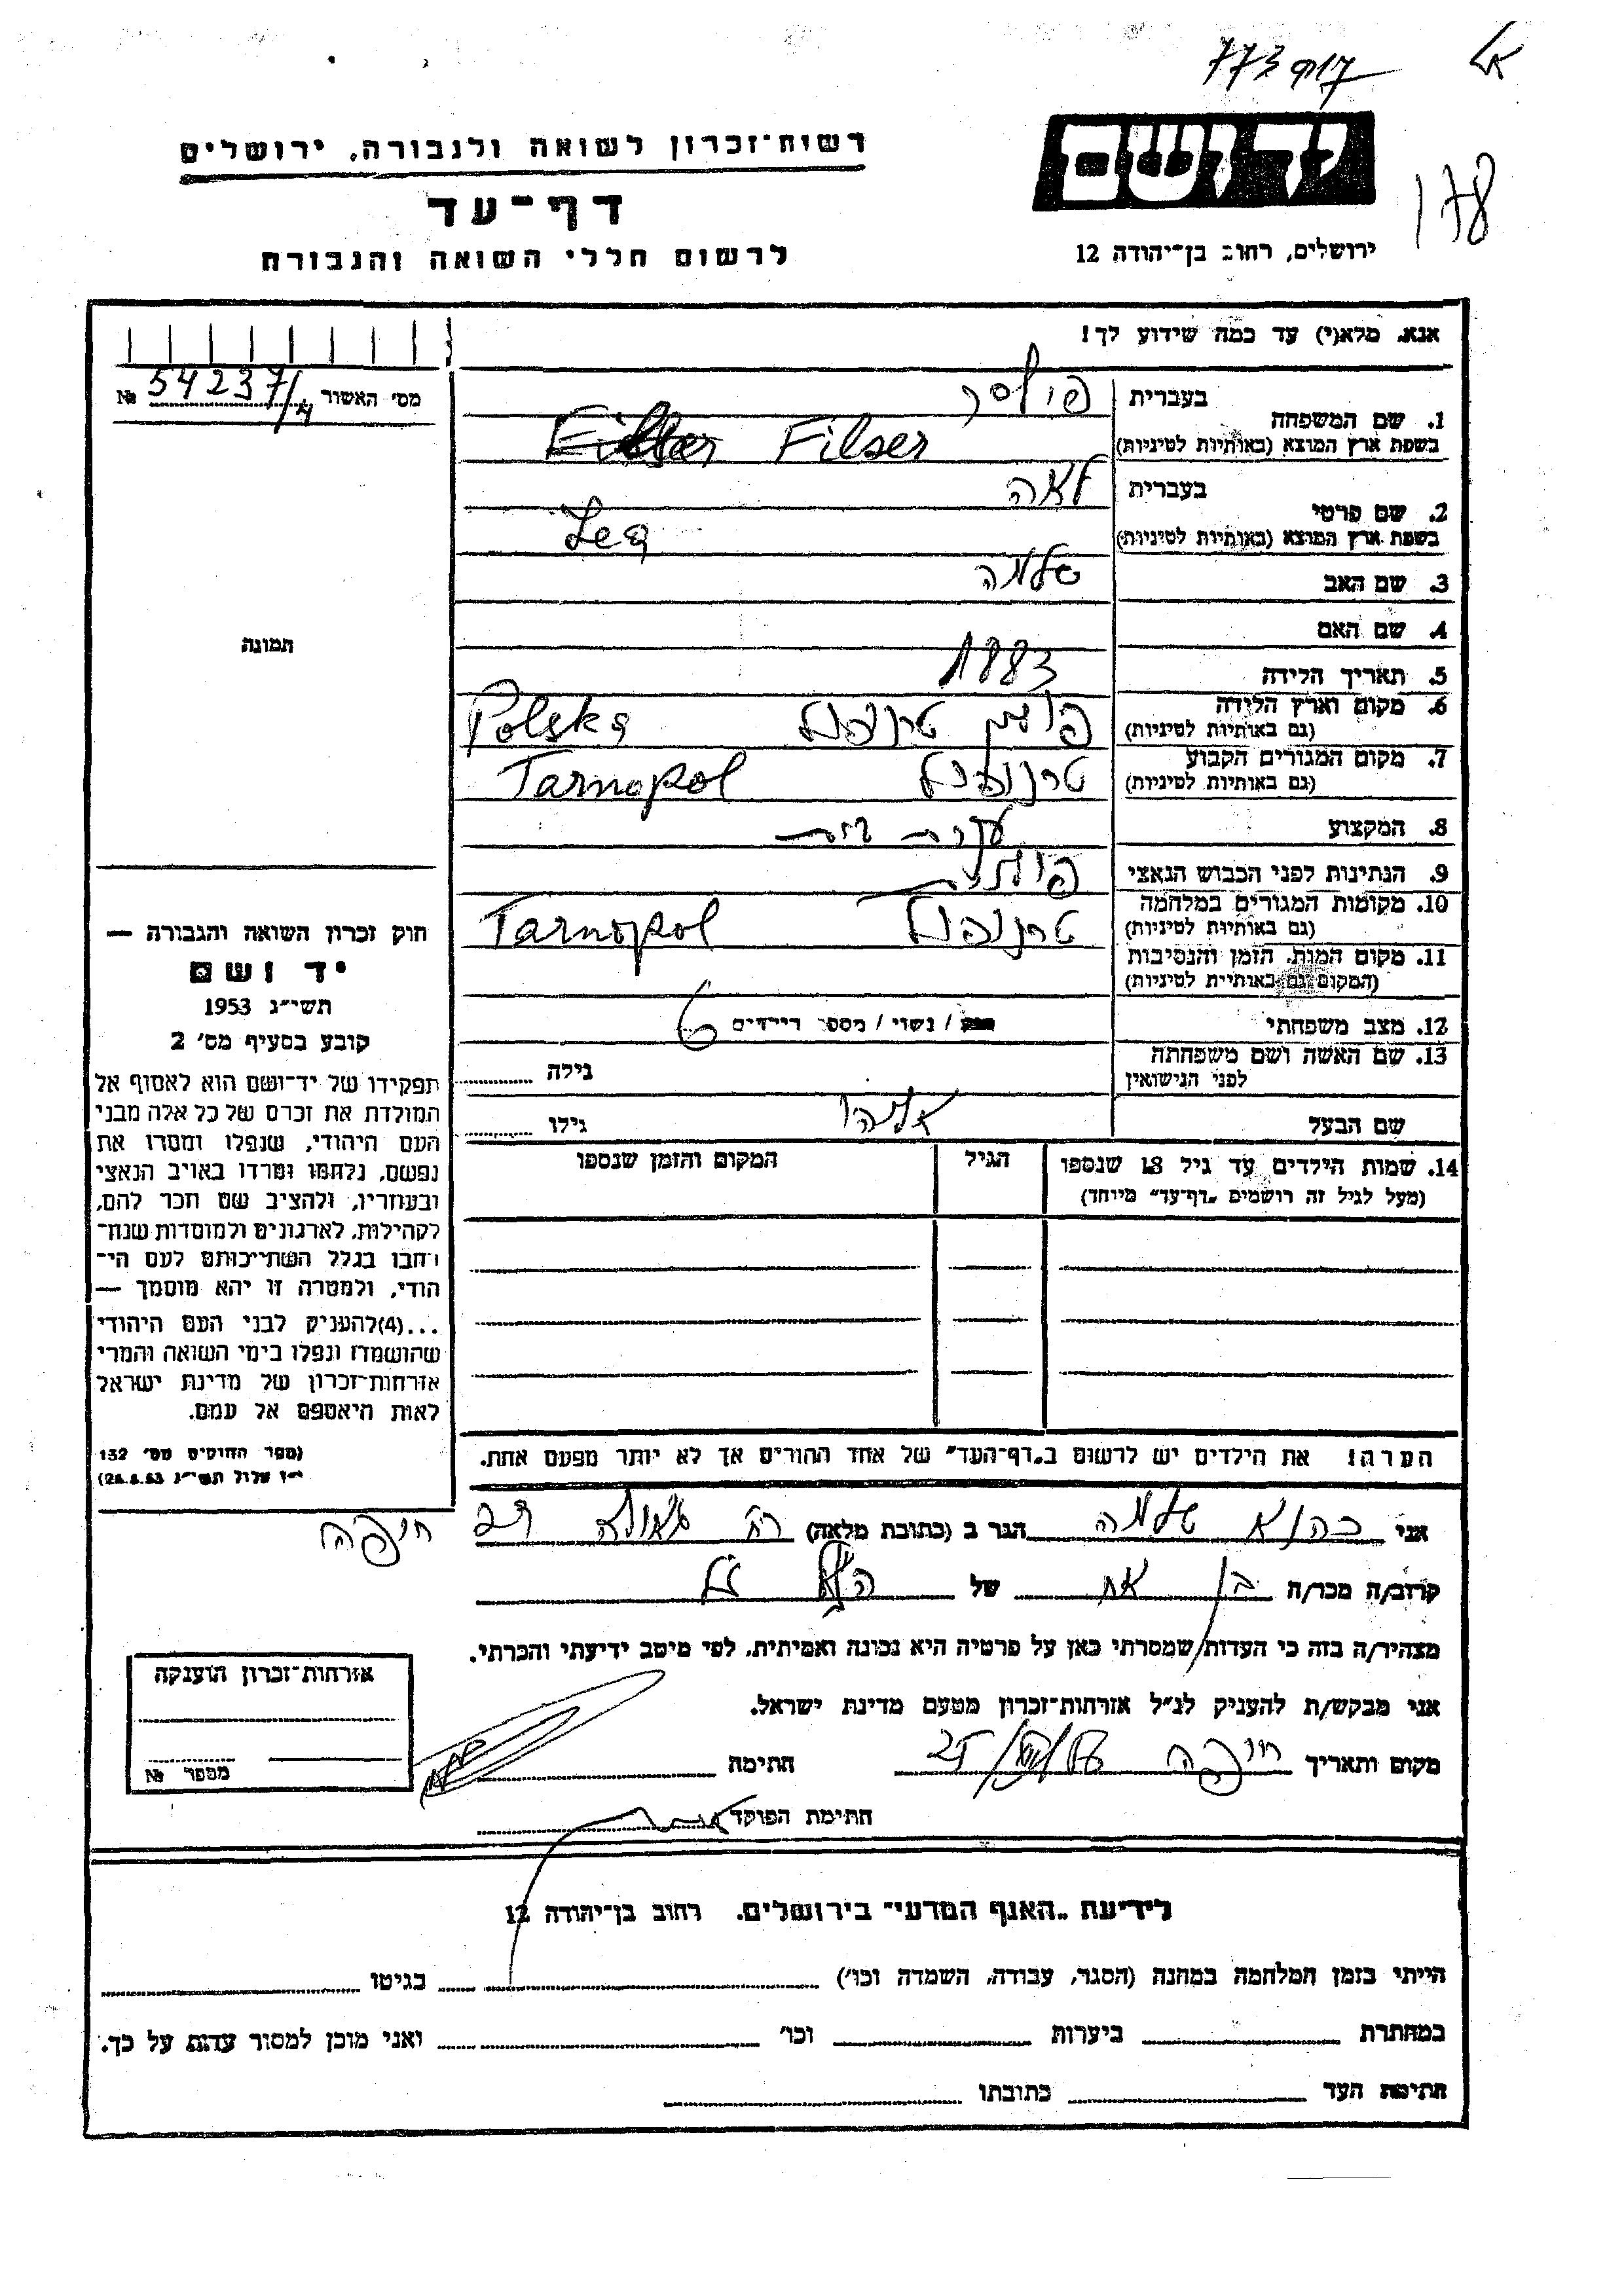 יד ושם
178
ירושלים, רחוב בן־יהודה 12
רשות־זכרון לשואה ולגבורה, ירושלים
דף־עד
לרשום חללי השואה והגבורה
אנא, מלא(י) עד כמה שידוע לך!
מס' האשור 54237/4 №
תמונה
1. שם המשפחה בעברית פילסר
בשפת ארץ המוצא (באותיות לטיניות) Filser
2. שם פרטי בעברית לאה
בשפת ארץ המוצא (באותיות לטיניות) Lea
3. שם האב שלמה
4. שם האם
5. תאריך הלידה 1883
6. מקום וארץ הלידה פולין טרנופול Polska
(גם באותיות לטיניות)
7. מקום המגורים הקבוע טרנופול Tarnopol
(גם באותיות לטיניות)
8. המקצוע עקרת בית
9. הנתינות לפני הכבוש הנאצי פולנית
10. מקומות המגורים במלחמה טרנופול Tarnopol
(גם באותיות לטיניות)
11. מקום המות, הזמן והנסיבות
(המקום גם באותיות לטיניות)
12. מצב משפחתי רווק / נשוי / מספר הילדים 6
13. שם האשה ושם משפחתה גילה
לפני הנישואין
שם הבעל אליהו גילו
14. שמות הילדים עד גיל 18 שנספו הגיל המקום והזמן שנספו
(מעל לגיל זה רושמים „דף־עד" מיוחד)
הערה! את הילדים יש לרשום ב„דף־העד" של אחד ההורים אך לא יותר מפעם אחת.
חוק זכרון השואה והגבורה —
יד ושם
תשי"ג 1953
קובע בסעיף מס' 2
תפקידו של יד־ושם הוא לאסוף אל
המולדת את זכרם של כל אלה מבני
העם היהודי, שנפלו ומסרו את
נפשם, נלחמו ומרדו באויב הנאצי
ובעוזריו, ולהציב שם וזכר להם,
לקהילות, לארגונים ולמוסדות שנח־
רבו בגלל השתייכותם לעם הי־
הודי, ולמטרה זו יהא מוסמך —
...(4)להעניק לבני העם היהודי
שהושמדו ונפלו בימי השואה והמרי
אזרחות־זכרון של מדינת ישראל
לאות היאספם אל עמם.
(ספר החוקים מס' 132
י"ז אלול תשי"ג 28.8.53)
אני כהנא שלמה הגר ב (כתובת מלאה) רח' גאולה חיפה
קרוב/ה מכר/ה בן אח של הנ"ל
מצהיר/ה בזה כי העדות שמסרתי כאן על פרטיה היא נכונה ואמיתית, לפי מיטב ידיעתי והכרתי.
אני מבקש/ת להעניק לנ"ל אזרחות־זכרון מטעם מדינת ישראל.
מקום ותאריך חיפה חתימה
חתימת הפוקד
אזרחות־זכרון הוענקה
מספר №
לידיעת „האגף המדעי" בירושלים, רחוב בן־יהודה 12
הייתי בזמן המלחמה במחנה (הסגר, עבודה, השמדה וכו') בגיטו
במחתרת ביערות וכו' ואני מוכן למסור עדות על כך.
חתימת העד כתובתו